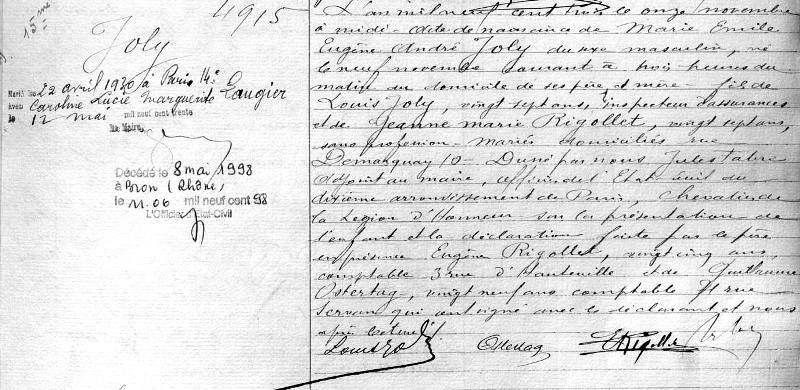 15me
4915
Joly
Marié le 22 avril 1930 à Paris 14e
avec Caroline Lucie Marguerite Laugier
le 12 mai mil neuf cent trente
Le Maire,
Décédé le 8 mai 1998
à Bron (Rhône)
le 11.06 mil neuf cent 98
L'Officier d'Etat-Civil
L'an mil neuf cent trois le onze novembre
à midi acte de naissance de Marie Emile
Eugène André Joly du sexe masculin, né
le neuf novembre courant à trois heures du
matin au domicile de ses père et mère - fils de
Louis Joly, vingt sept ans, inspecteur d'assurances
et de Jeanne Marie Rigollet, vingt sept ans,
sans profession - mariés domiciliés rue
Demarquay 10 - Dressé par nous Jules
adjoint au maire, officier de l'Etat civil du
dixième arrondissement de Paris, Chevalier de
la Légion d'Honneur sur la présentation de
l'enfant et la déclaration faite par le père
en présence Eugène Rigollet, vingt cinq ans,
comptable 3 rue d'Hauteville et de Guillaume
Ostertag, vingt neuf ans comptable 71 rue
Servan qui ont signé avec le déclarant et nous
après lecture
Louis Joly Ostertag E Rigollet